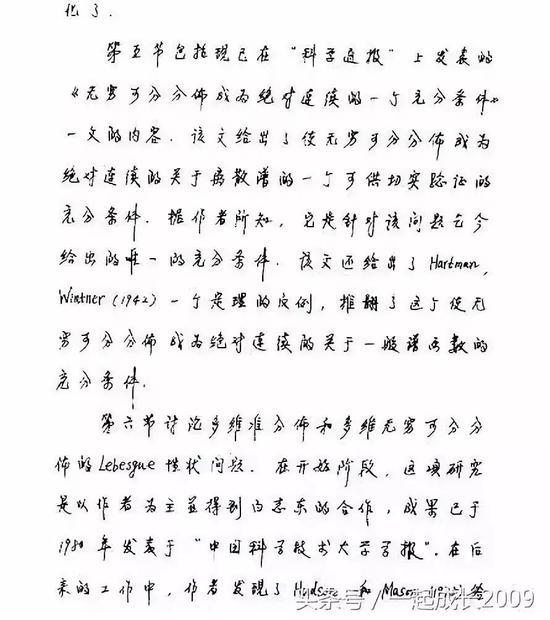 化了.
第五节包括现已在“科学通报”上发表的
《无穷可分分佈成为绝对连续的一个充分条件》
一文的内容. 该文给出了使无穷可分分佈成为
绝对连续的关于离散谱的一个可供切实验证的
充分条件. 据作者所知, 它是针对该问题迄今
给出的唯一的充分条件. 该文还给出了Hartman,
Wintner (1942) 一个定理的反例, 推翻了这个使无
穷可分分佈成为绝对连续的关于一般谱函数的
充分条件.
第六节讨论多维准分佈和多维无穷可分分
佈的Lebesgue性状问题. 在开始阶段, 这项研究
是以作者为主并得到白志东的合作, 成果已于
1980年发表于“中国科学技术大学学报”. 在后
来的工作中, 作者发现了 和 Mason
头条号/一起成长2009